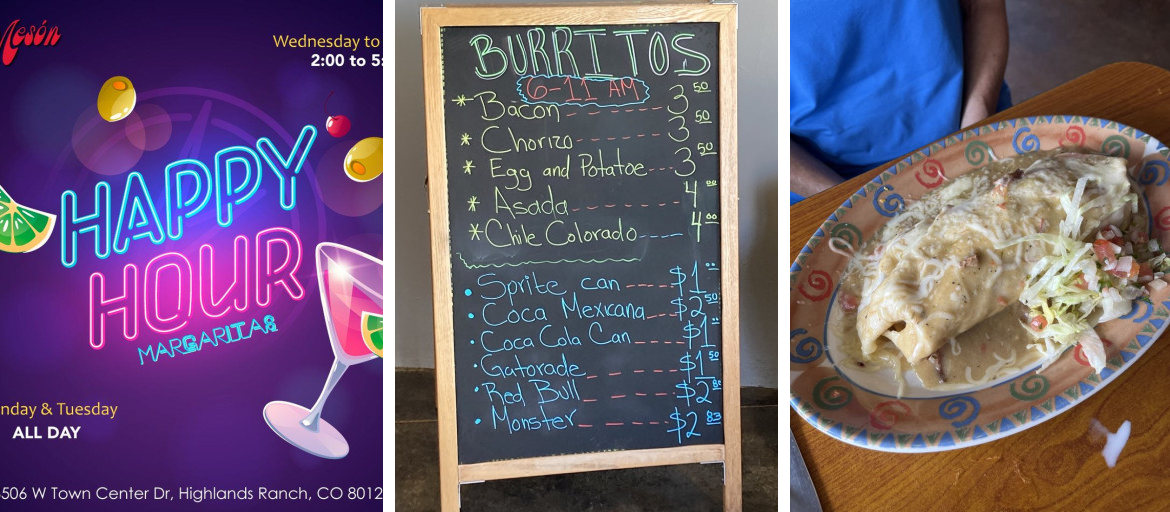 Mesón
Wednesday to
2:00 to 5:
HAPPY
HOUR
MARGARITAS
nday & Tuesday
ALL DAY
506 W Town Center Dr, Highlands Ranch, CO 8012
BURRITOS
6-11 AM
* Bacon ----- 3 50
* Chorizo ------ 3 50
* Egg and Potatoe --- 3 50
* Asada ------ 4 00
* Chile Colorado ---- 4 00
• Sprite can ---- $1 00
• Coca Mexicana ---- $2 50
• Coca Cola Can ---- $1 00
• Gatorade ---- $1 50
• Red Bull ---- $2 80
• Monster ----- $2 83